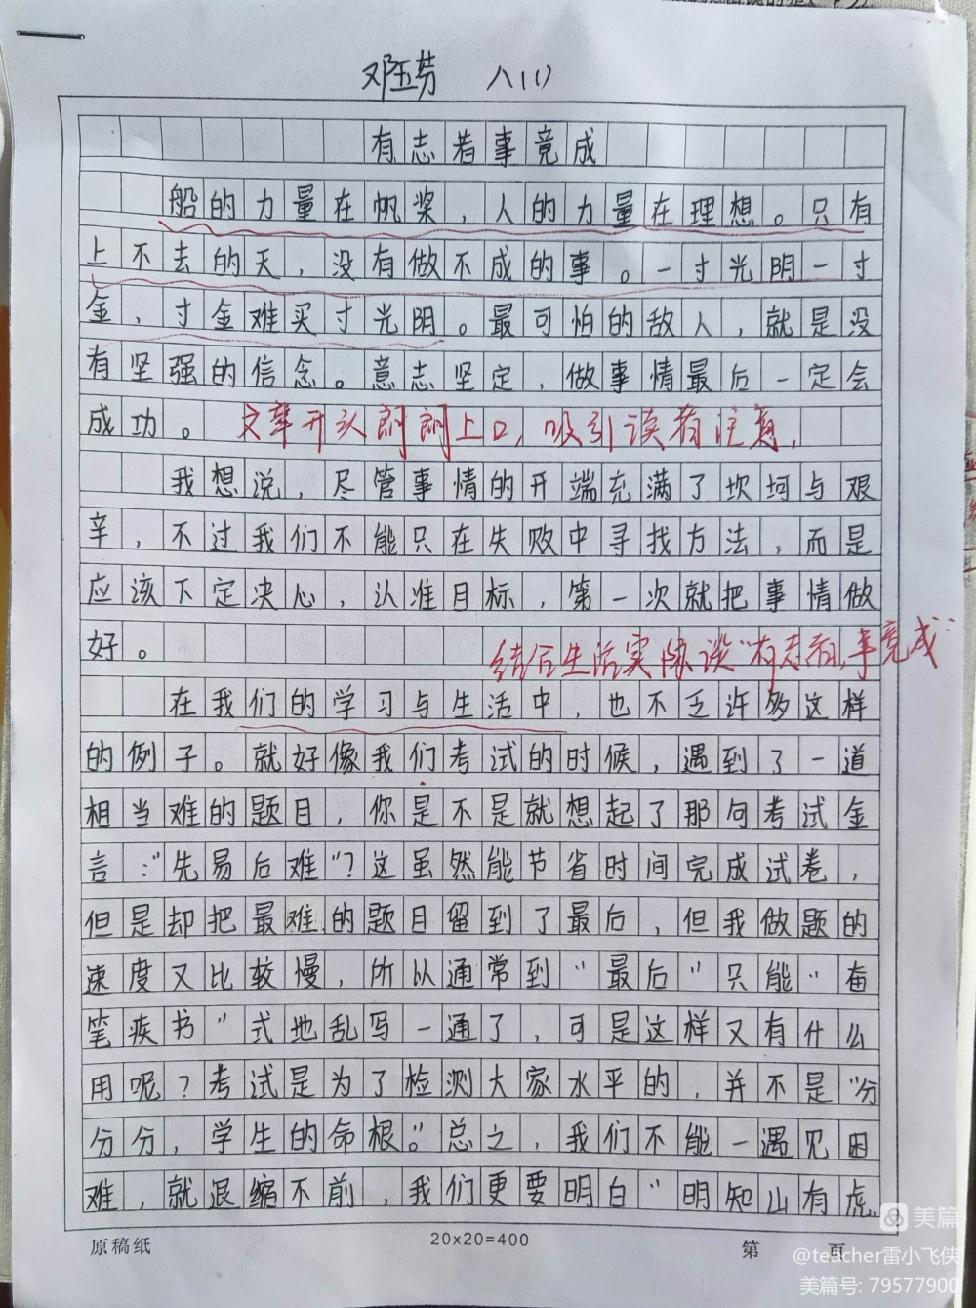 邓玉芳 八(1)
有志者事竟成
船的力量在帆桨，人的力量在理想。只有
上不去的天，没有做不成的事。一寸光阴一寸
金，寸金难买寸光阴。最可怕的敌人，就是没
有坚强的信念。意志坚定，做事情最后一定会
成功。 文章开头朗朗上口，吸引读者注意。
我想说，尽管事情的开端充满了坎坷与艰
辛，不过我们不能只在失败中寻找方法，而是
应该下定决心，认准目标，第一次就把事情做
好。 结合生活实际谈“有志者，事竟成”
在我们的学习与生活中，也不乏许多这样
的例子。就好像我们考试的时候，遇到了一道
相当难的题目，你是不是就想起了那句考试金
言：“先易后难”？这虽然能节省时间完成试卷，
但是却把最难的题目留到了最后，但我做题的
速度又比较慢，所以通常到“最后”只能“奋
笔疾书”式地乱写一通了，可是这样又有什么
用呢？考试是为了检测大家水平的，并不是“分
分分，学生的命根。”总之，我们不能一遇见困
难，就退缩不前，我们更要明白“明知山有虎，
原稿纸 20×20=400 第 页
美篇
@teacher雷小飞侠
美篇号: 79577900